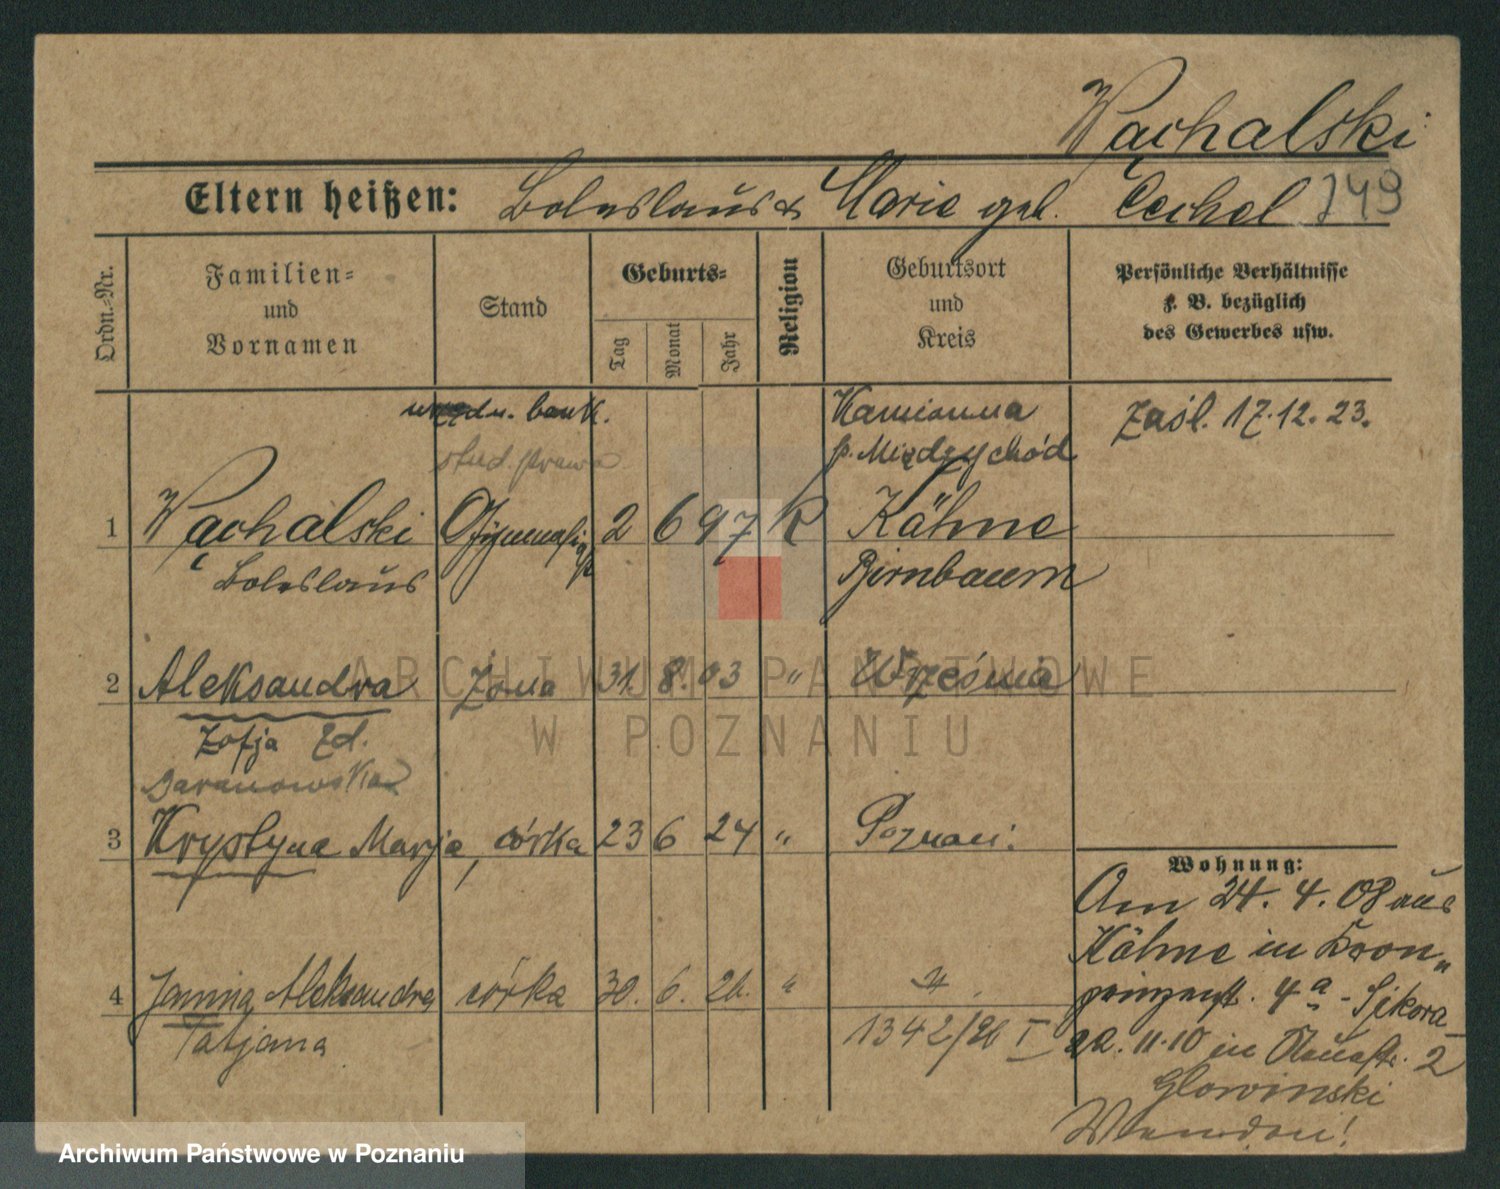 Wąchalski
Eltern heißen: Boleslaus & Marie geb. Cechel 749
Ordn.-Nr.
Familien-
und
Vornamen
Stand
Geburts-
Tag
Monat
Jahr
Religion
Geburtsort
und
Kreis
Persönliche Verhältnisse
z. B. bezüglich
des Gewerbes usw.
urzędn. bank.
stud. prawa
Kamionna
p. Międzychód
zaśl. 17.12.23.
1 Wąchalski Gymnasiast 2 6 97 K Kähme
Boleslaus Birnbaum
2 Aleksandra żona 31. 8. 03 " Września
Zofja zd.
Baranowska
3 Krystyna Marja, córka 23 6 24 " Poznań.
4 Janina Aleksandra córka 30. 6. 26. " "
Tatjana
1342/26 I
Wohnung:
Am 24. 4. 08 aus
Kähme in Kron-
prinzenst. 4a - Sikora
11.10 in 2
Glowinski
ARCHIWUM PAŃSTWOWE
W POZNANIU
Archiwum Państwowe w Poznaniu